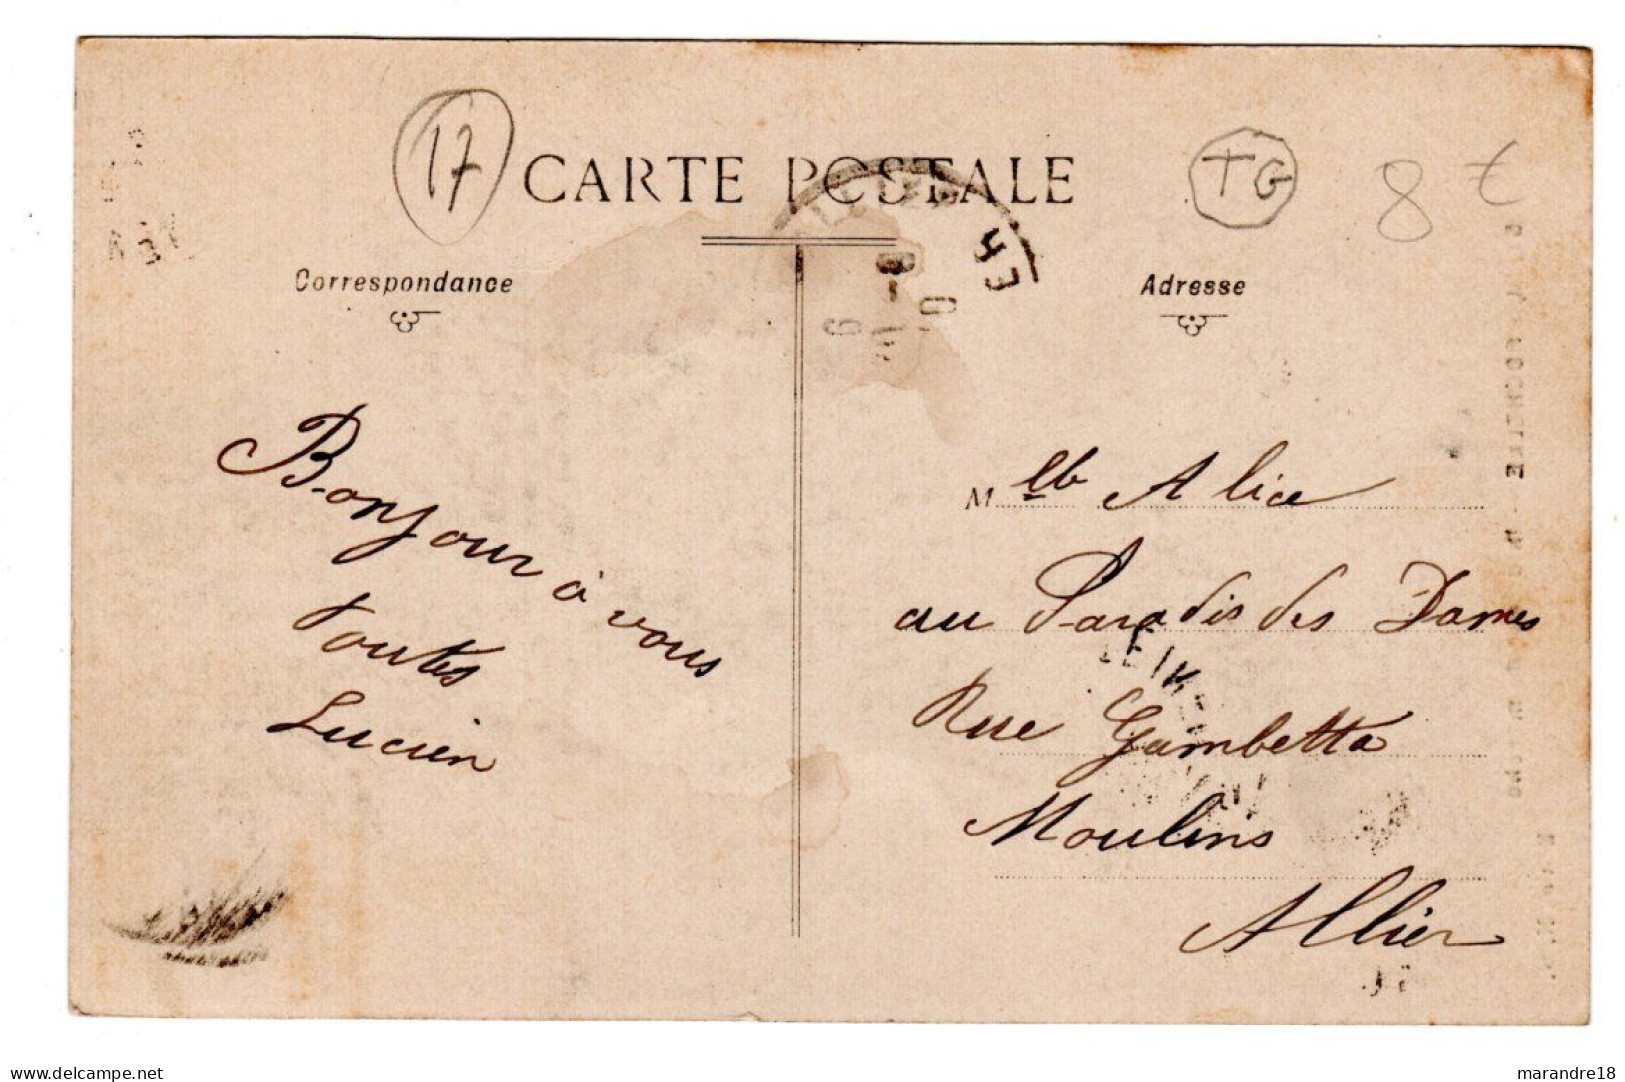 17
CARTE POSTALE
TG
8 €
Correspondance
Adresse
Bonjour à vous
toutes
Lucien
M elle Alice
au Paradis des Dames
Rue Gambetta
Moulins
Allier
marandre18